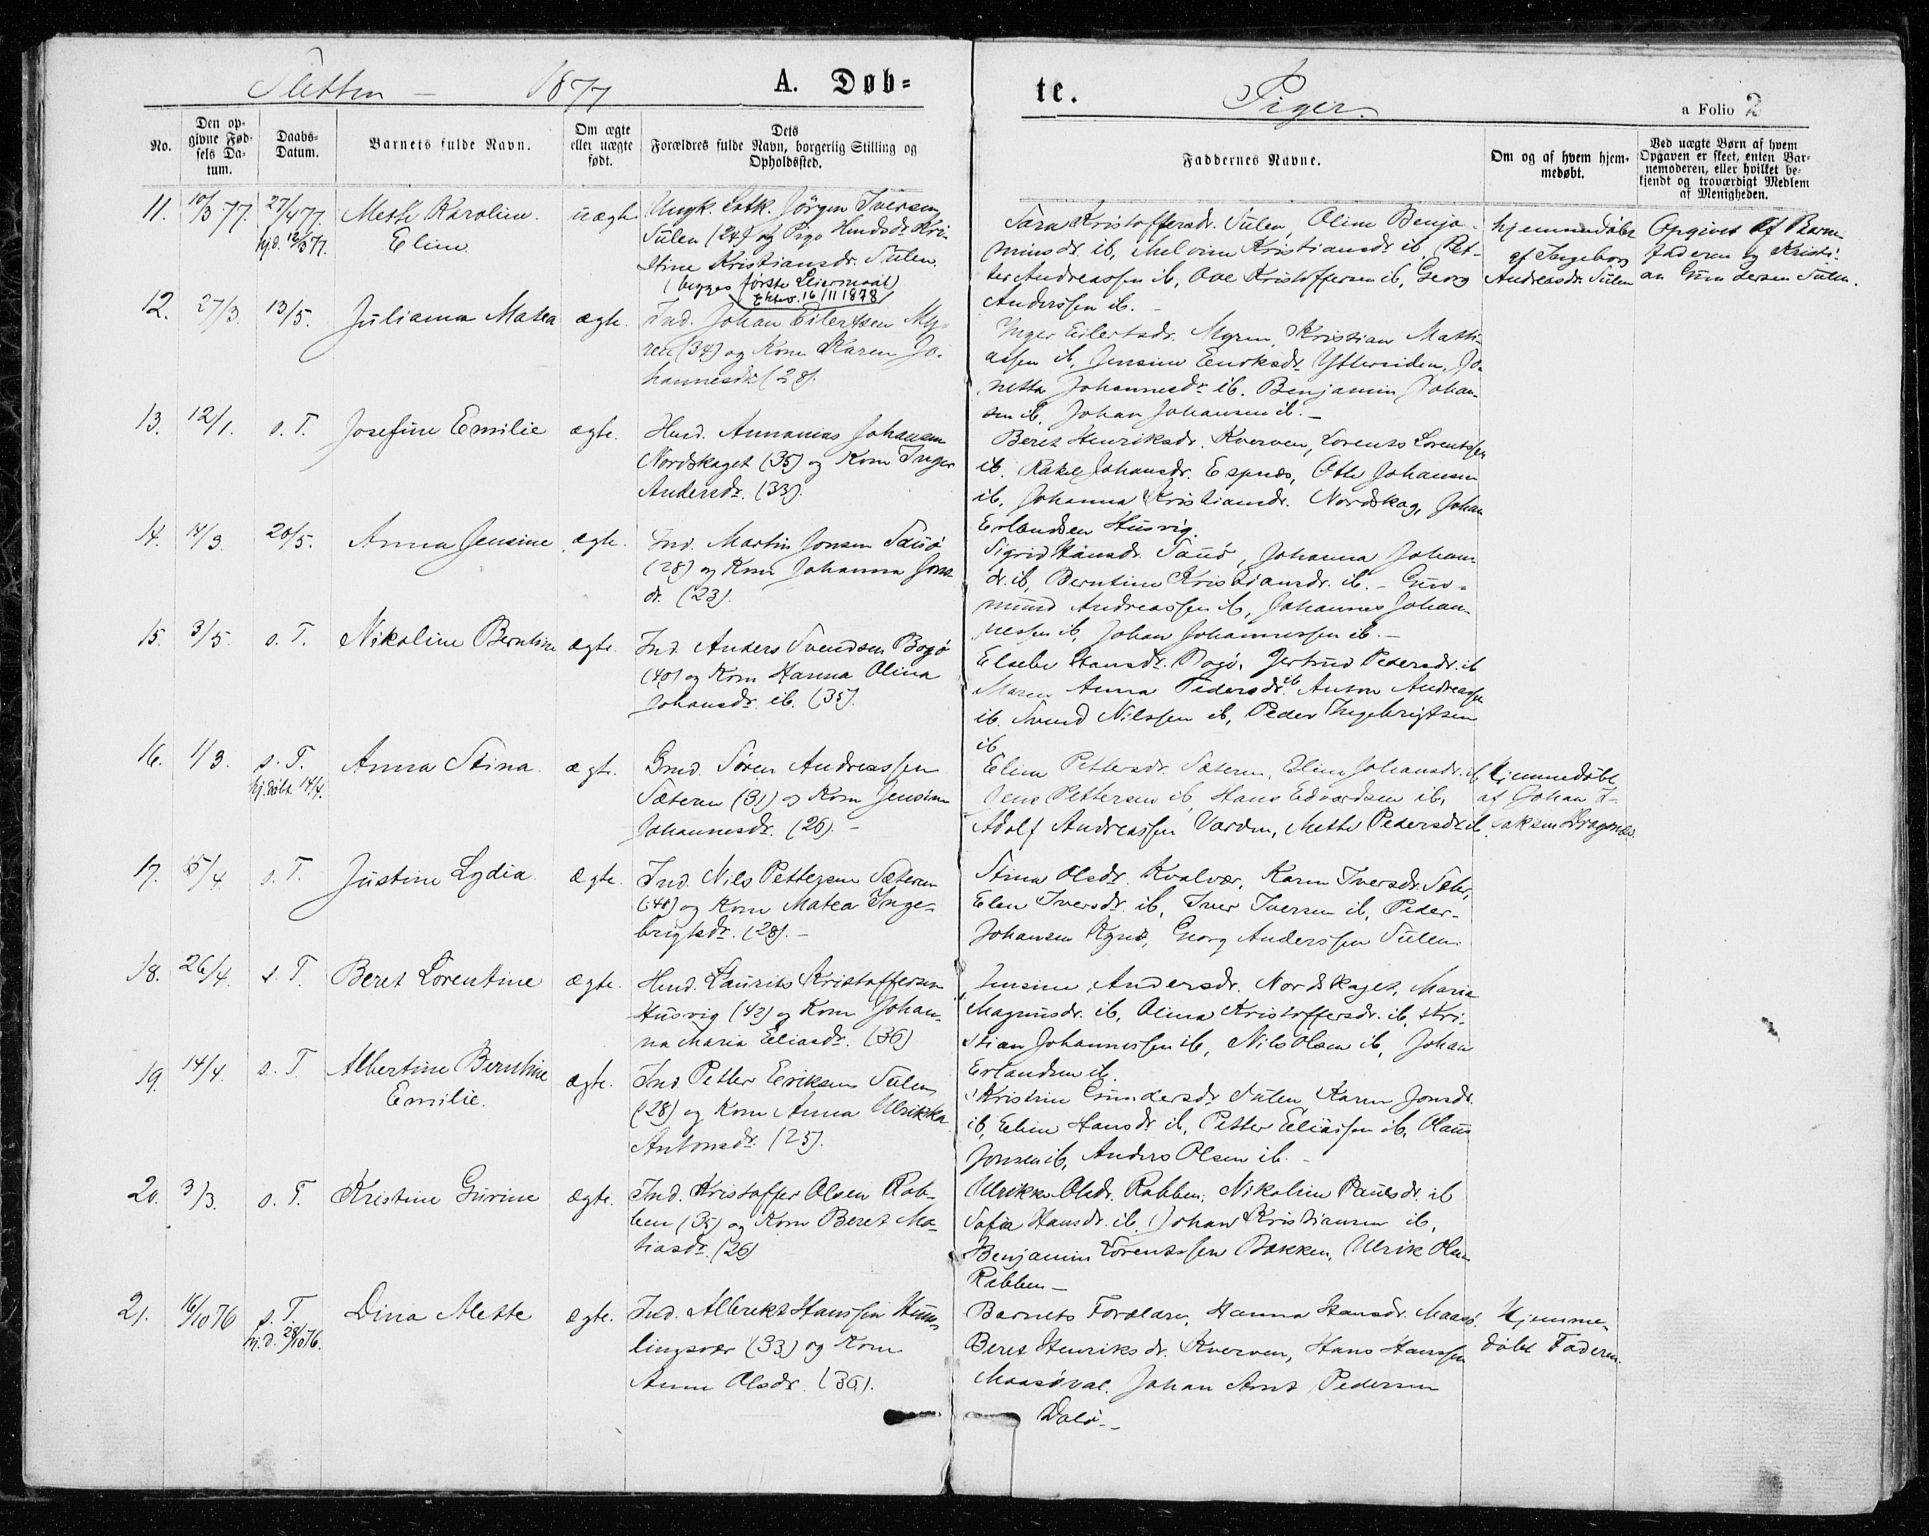 Sletten — 1877 A. Døb- te. Piger. a Folio 2
No.
Den opgivne Fødsels Datum.
Daabs-Datum.
Barnets fulde Navn.
Om ægte eller uægte født.
Dets Forældres fulde Navn, borgerlig Stilling og Opholdssted.
Faddernes Navne.
Om og af hvem hjemmedøbt.
Ved uægte Børn af hvem Opgaven er skeet, enten Barnemoderen, eller hvilket bekjendt og troværdigt Medlem af Menigheden.
11. 10/3 77. 27/4 77. hj.d. 12/3 77. Mette Karoline Eline uægte
Ungk. Jörgen Iversen
Sulen (24) og Pige Kri-
stine Kristiansdr. Sulen.
(begges første Leiermaal)
Ektev. 16/11 1878
Sara Kristoffersdr. Sulen, Oline Benja-
minsdr. ib, Melvine Kristiansdr. ib, Pet-
ter Andreassen ib, Ove Kristoffersen ib, Georg
Anderssen ib. —
hjemmedøbt
af Ingeborg
Andreasdr. Sulen
Opgivet af Barne-
faderen og Kristi-
an Gundersen Sulen.
12. 27/3 13/5. Julianna Matea ægte.
Ind. Johan Eilertsen My-
ren (34) og Kone Karen Jo-
hannesdr. (28).
Inger Eilertsdr. Myren, Kristian Matti-
assen ib, Jensine Eriksdr. Yttersiden, Jo-
netta Johannesdr. ib. Benjamin Johan-
sen ib, Johan Johansen ib. —
13. 12/1. s. T. Josefine Emilie ægte.
Hmd. Annanias Johansen
Nordskaget (35) og Kone Inger
Andersdr. (33).
Beret Henriksdr. Kverven, Lorents Lorentssen
ib. Rakel Johansdr. Espnes, Otte Johansen
ib, Johanna Kristiansdr. Nordskag, Johan
Erlandsen Husvig.
14. 14/3. 20/5. Anna Jensine ægte.
Ind. Martin Jonsen Sauø
(28) og Kone Johanna Jons-
dr. (23).
Sigrid Hansdr. Sauø, Johanna Johans-
dr. ib, Berntine Kristiansdr. ib. — Gud-
mund Andreassen ib, Johannes Johan-
nessen ib, Johan Johannessen ib. —
15. 3/5. s. T. Nikoline Berntine ægte.
Ind. Anders Svendsen Bogø
(40) og Kone Hanna Olina
Johansdr. ib. (35).
Elsebe Hansdr. Bogø, Jertrud Pedersdr. ib
Maren Anna Pedersdr. ib Anton Andreassen
ib. Svend Nilssen ib, Peder Ingebrigtsen
ib
16. 1/3. s. T. hj.døbt 14/4. Anna Stina. ægte.
Grmd. Søren Andreassen
Sæteren (31) og Kone Jensine
Johannesdr. (26). —
Eline Pettersdr. Sæteren, Eline Johansdr. ib,
Jens Pettersen ib, Hans Edvardsen ib,
Adolf Andreassen Varden, Mette Pedersdr. ib.
Hjemmedøbt
af Johan I-
saksen Dragsnes.
17. 5/4. s. T. Justine Lydia. ægte.
Ind. Nils Pettersen Sæteren
(40) og Kone Matea Inge-
brigtsdr. (28). —
Stina Olsdr. Kvalvær, Karen Iversdr. Sæter,
Elen Iversdr. ib, Iver Iversen ib, Peder
Johansen, Georg Anderssen Sulen.
18. 26/4. s. T. Beret Lorentine ægte.
Hmd. Laurits Kristoffersen
Husvig (42) og Kone Johan-
na Maria Eliasdr. (36)
Jensine Andersdr. Nordskaget, Maria
Magnusdr. ib, Olina Kristoffersdr. ib, Kri-
stian Johannessen ib, Nils Olsen ib, Johan
Erlandsen ib.
19. 14/4. s. T. Albertine Berntine
Emilie. ægte.
Ind. Petter Eriksen Sulen
(28) og Kone Anna Ulrikka
Antonsdr. (25).
Kristine Gundersdr. Sulen Karen Jonsdr.
ib, Eline Hansdr. ib, Petter Eliassen ib, Olaus
Jonsen ib, Anders Olsen ib. —
20. 3/3. s. T. Kristine Gurine ægte.
Ind. Kristoffer Olsen Rab-
ben (35) og Kone Beret Ma-
tiasdr. (26)
Ulrikke Olsdr. Rabben, Nikoline Paulsdr. ib
Sofia Hansdr. ib, Johan Kristiansen ib,
Benjamin Lorentssen Bakken, Ulrik Olsen
Rabben —
21. 16/10 76 s. T. hj.d. 28/10 76. Dina Mette ægte.
Ind. Albrikt Hanssen Hum-
lingsvær (33) og Kone
Anne Olsdr. (36).
Barnets Forældre, Hanna Hansdr. Maasø.
Beret Henriksdr. Kverven, Hans Hanssen
Maasøval, Johan Arnt Pedersen
Dalø. —
Hjemme-
døbt Faderen.